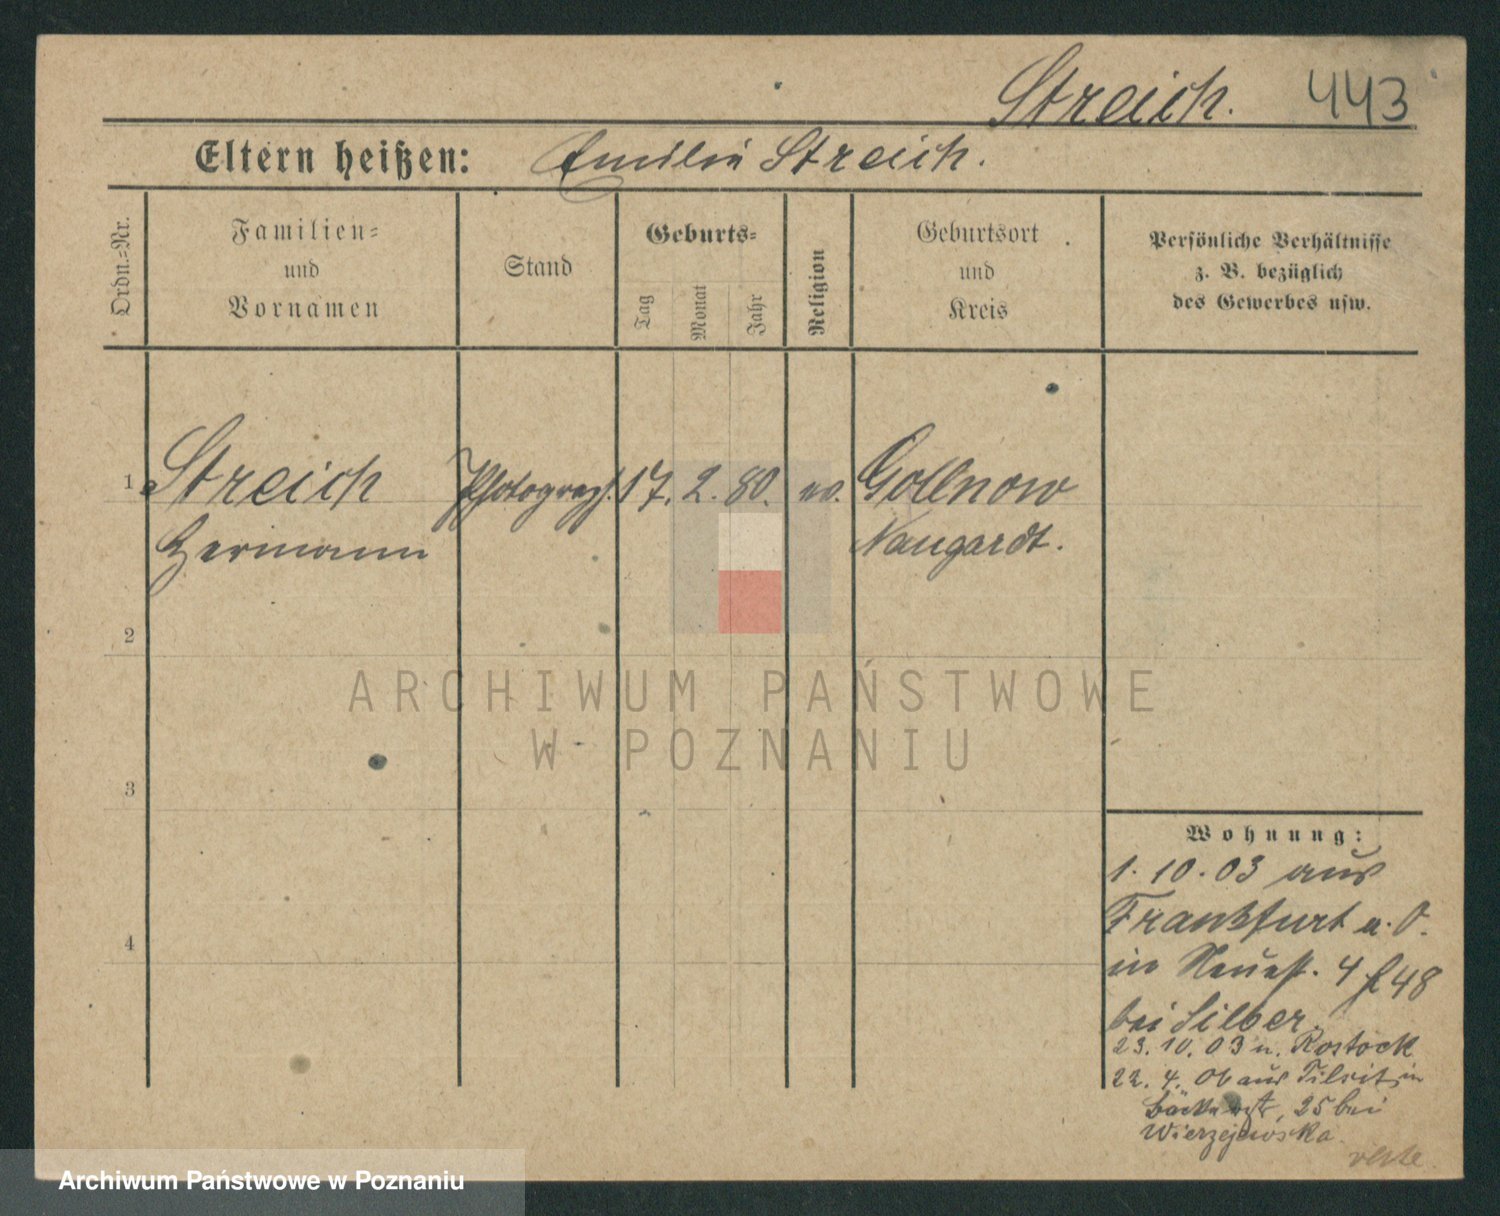 Streich. 443
Eltern heißen: Emilie Streich.
Ordn.-Nr.
Familien-
und
Vornamen
Stand
Geburts-
Tag
Monat
Jahr
Religion
Geburtsort
und
Kreis
Persönliche Verhältnisse
z. B. bezüglich
des Gewerbes usw.
1 Streich Photograph. 17. 2. 80. ev. Gollnow
Hermann Naugardt.
2
3
4
ARCHIWUM PAŃSTWOWE
W POZNANIU
Wohnung:
1. 10. 03 aus
Frankfurt a. O.
in Neuest. 4 f 48
bei Silber.
23. 10. 03 n. Rostock
22. 4. 06 aus Tilsit in
25 bei
Wierzejewska.
verte
Archiwum Państwowe w Poznaniu